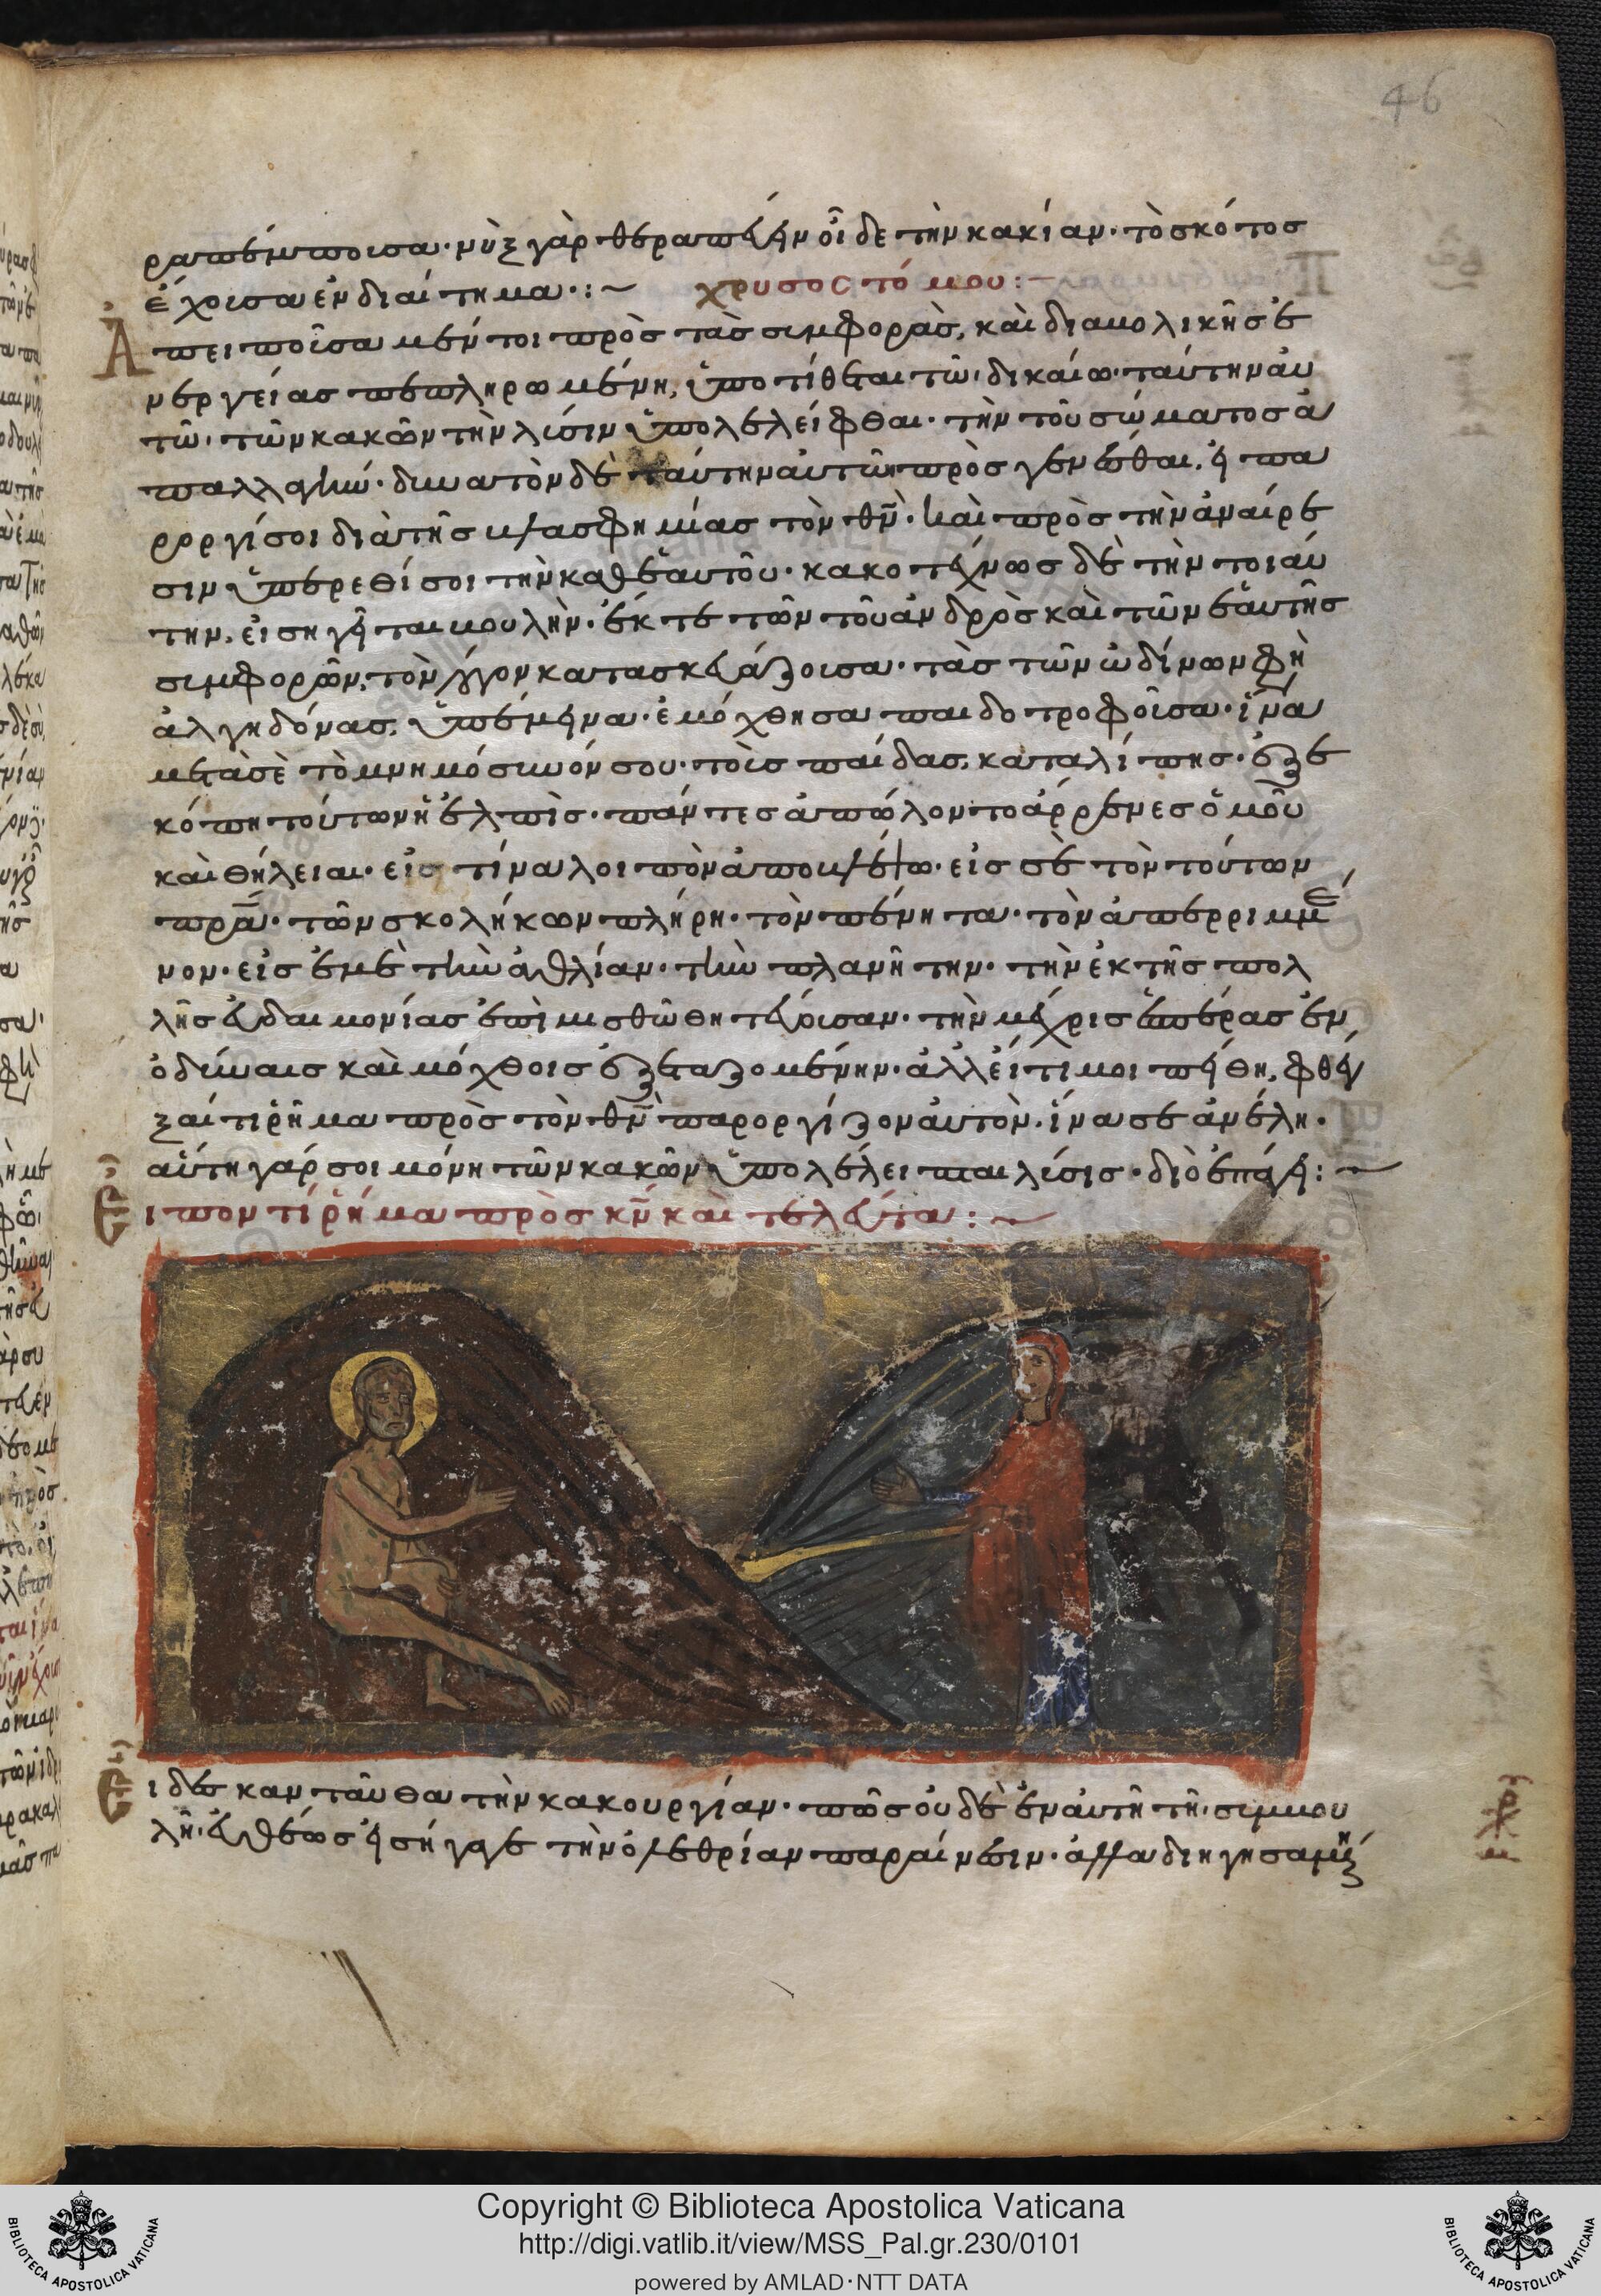 46
ραπέμπουσα· νὺξ γὰρ θεραπεύειν οἶδε τὴν κακίαν· τὸ σκότος
ἔχουσα ἐνδιαίτημα·:~ χρυσοστόμου:~
Ἀπειποῦσα μέντοι πρὸς τὰς συμφορὰς, καὶ διαβολικῆς ἐ
νεργείας πεπληρωμένη, ὑποτίθεται τῶ δικαίω· ταύτην αὐ
τῶ· τῶν κακῶν τὴν λύσιν ὑπολελεῖφθαι· τὴν τοῦ σώματος ἀ
παλλαγὴν· δυνατὸν δὲ ταύτην αὐτῶ προσγενέσθαι, εἰ πα
ροργίσοι διὰ τῆς βλασφημίας τὸν θν̄· καὶ πρὸς τὴν ἀναίρε
σιν ὑπερεθίσοι τὴν καθ' ἑαυτοῦ· κακοτέχνως δὲ τὴν τοιαύ
την, εἰσηγεῖται βουλὴν· ἔκ τε τῶν τοῦ ἀνδρὸς καὶ τῶν ἑαυτῆς
συμφορῶν, τὸν λόγον κατασκευάζουσα· τὰς τῶν ὠδίνων φη
ἀλγηδόνας, ὑπέμεινα· ἐμόχθησα παιδοτροφοῦσα· ἵνα
μετὰ σὲ τὸ μνημόσυνόν σου· τοὺς παῖδας, καταλίπης· ἐξε
κόπη τούτων ἡ ἐλπὶς· πάντες ἀπώλοντο ἄρρενες ὁμοῦ
καὶ θήλειαι· εἰς τίνα λοιπὸν ἀποβλέψω· εἰς σὲ τὸν τούτων
πρ̄α· τῶν σκολήκων πλήρη· τὸν πένητα· τὸν ἀπερριμμέ
νον· εἰς ἐμὲ τὴν ἀθλίαν· τὴν πλανῆτην· τὴν ἐκ τῆς πολ
λῆς εὐδαιμονίας ἐπὶ μισθῶ θητεύουσαν· τὴν μέχρις ἑσπέρας ἐν
ὀδύναις καὶ μόχθοις ἐξεταζομένην· ἀλλ' εἴ τί μοι πείθη, φθέγ
ξαί τι ῥῆμα πρὸς τὸν θν̄ παροργίζον αὐτὸν· ἵνα σε ἀνέλη·
αὕτη γάρ σοι μόνη τῶν κακῶν ὑπολέλειπται λύσις· διὸ ἐπάγει:~
Εἰπόν τί ῥῆμα πρὸς κν̄ καὶ τελεύτα:~
Εἶδες κἀνταῦθα τὴν κακουργίαν· πῶς οὐδὲ ἐν αὐτῆ τῆ συμβου
λῆ· εὐθέως εἰσήγαγε τὴν ὀλεθρίαν παραίνεσιν· ἀλλὰ διηγησαμένη
Copyright © Biblioteca Apostolica Vaticana
http://digi.vatlib.it/view/MSS_Pal.gr.230/0101
powered by AMLAD·NTT DATA
BIBLIOTECA APOSTOLICA VATICANA
BIBLIOTECA APOSTOLICA VATICANA